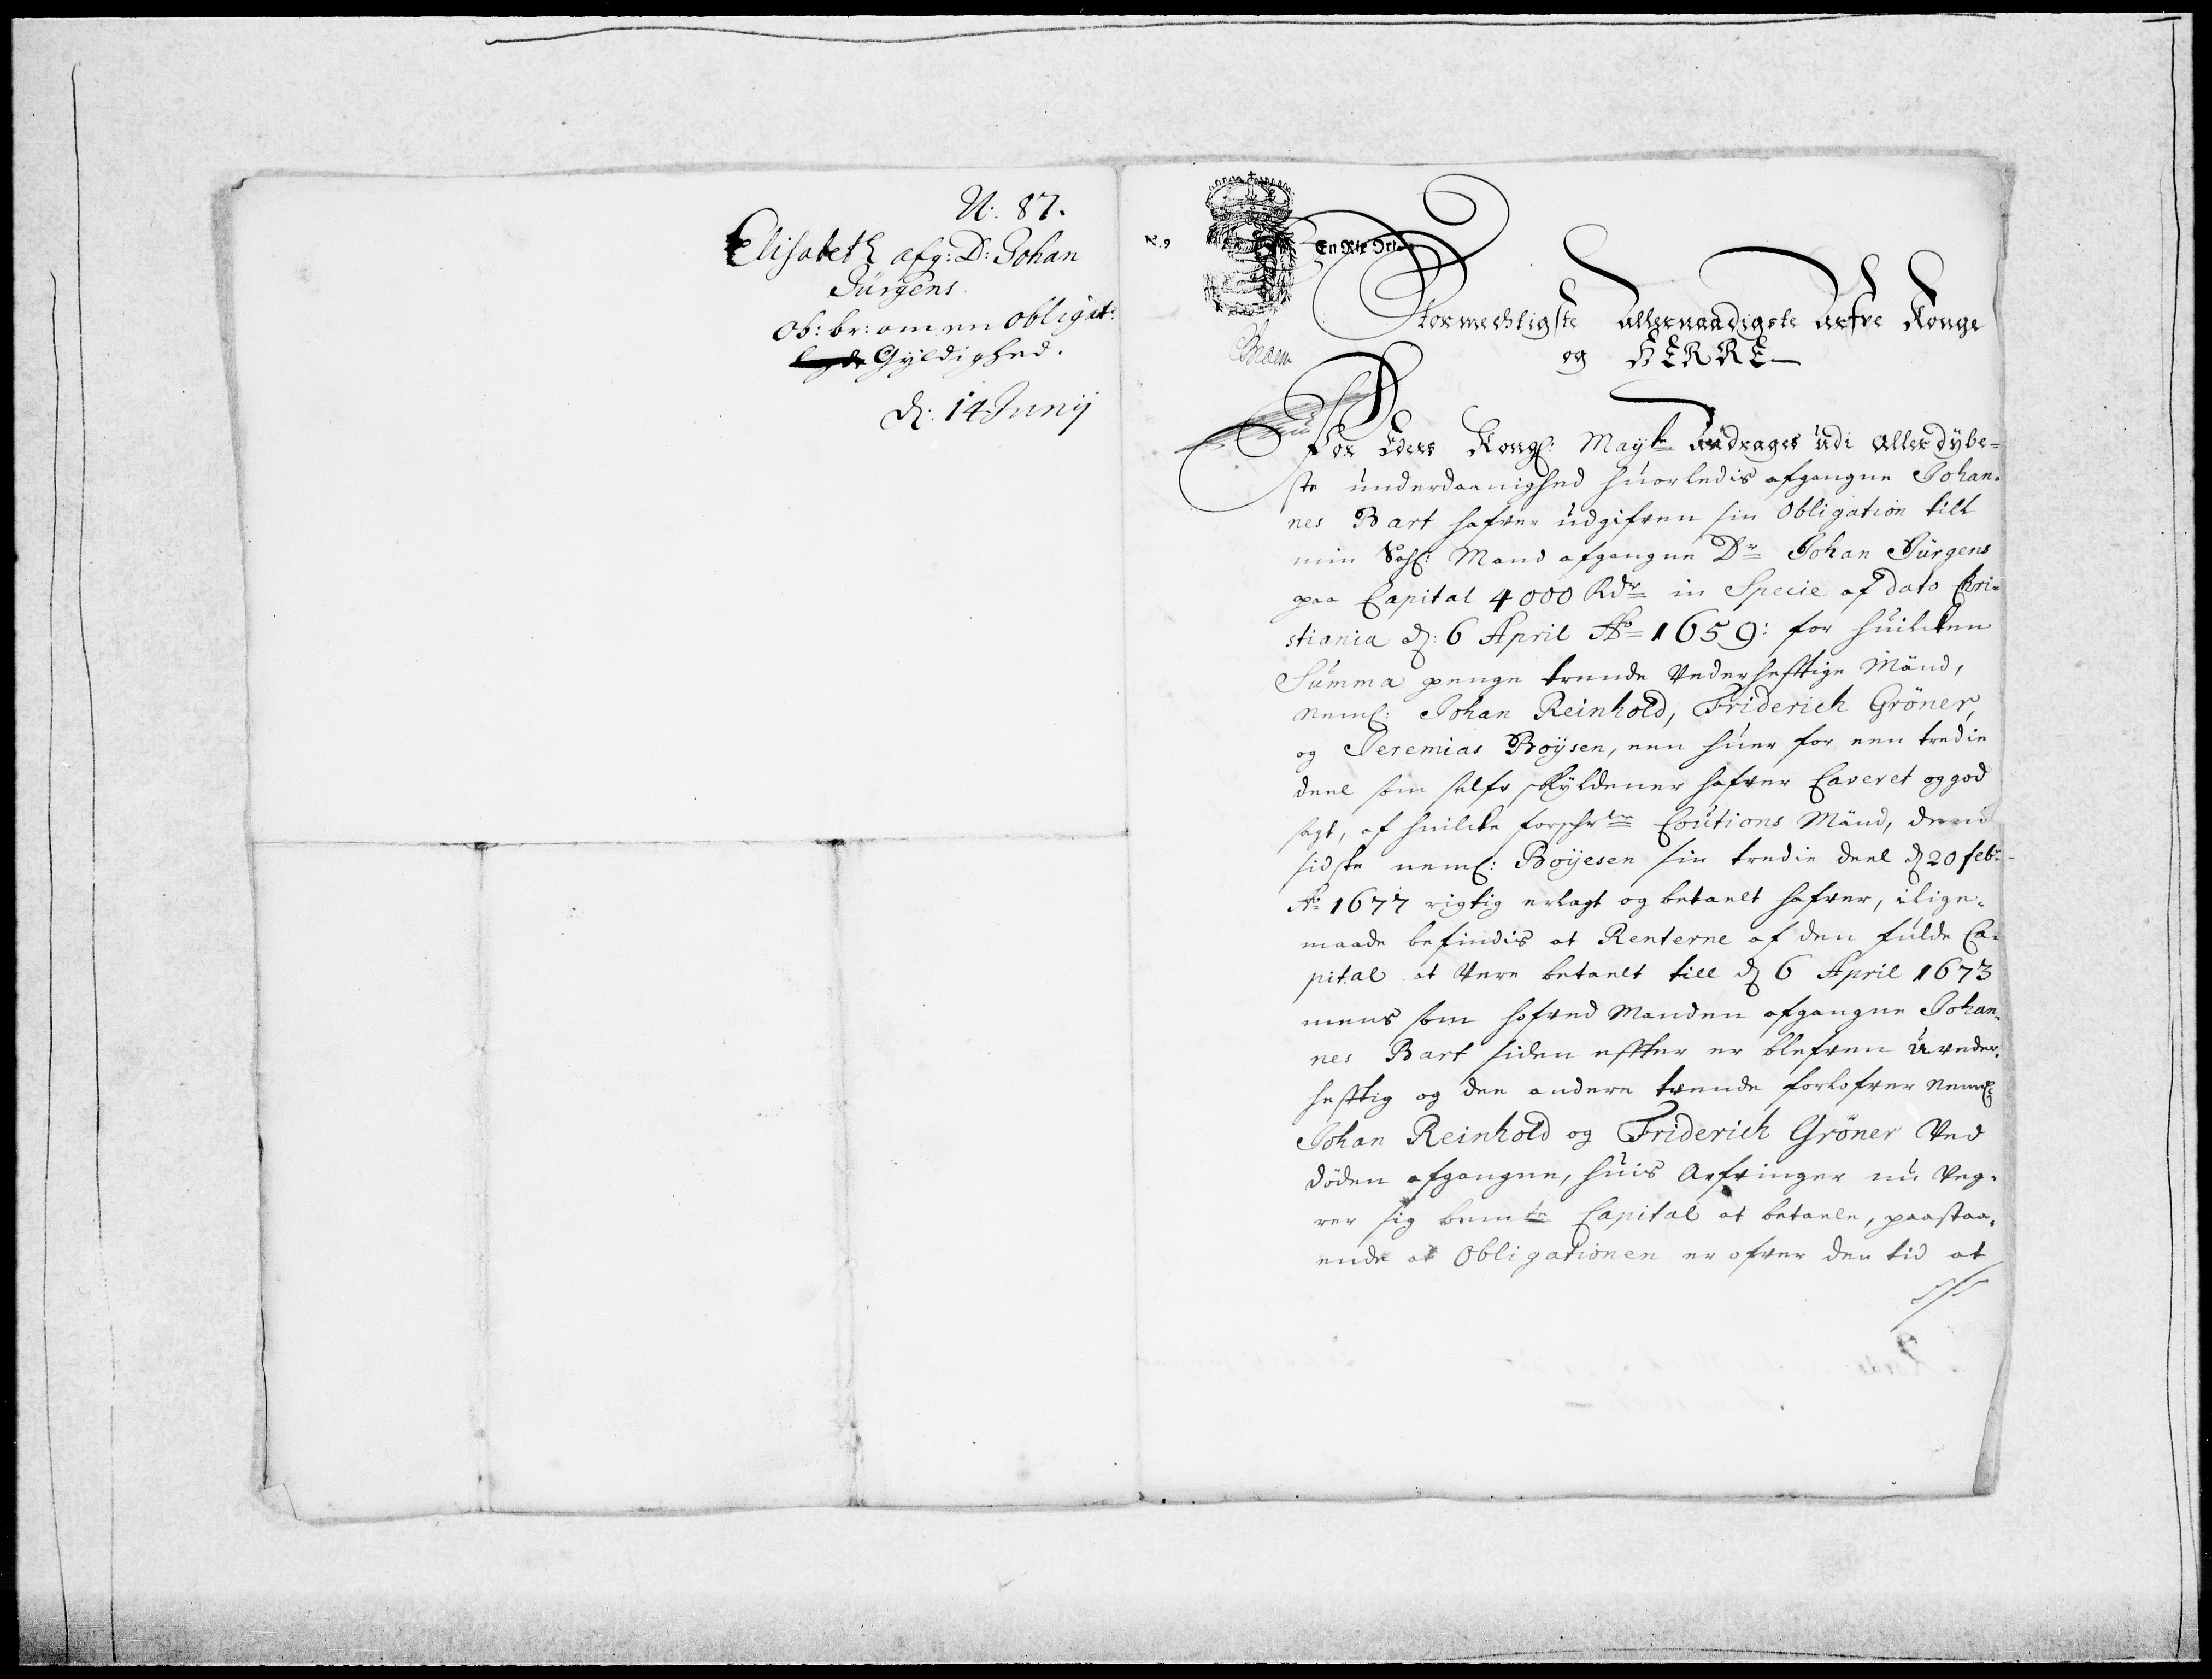 N: 87.
Elisabeth afg: D: Johan
Jürgens
Ob: br: om en Obligat:
Gyldighed.
d: 14 Junij
No 9
En Rix Ort
Stormechtigste Allernaadigste Arfve Konge
og HERRE
For Eders Kongl: Mayts andrages udi Aller dÿbe=
ste underdaanighed huorledis afgangne Johan=
nes Bart hafver udgifven sin Obligation till
min Sahl: Mand afgangne Dr Johan Jürgens
paa Capital 4000 Rdr in Specie af dato Chri=
stiania d: 6 April Ao 1659: for huilcken
Summa penge trende Vederhefftige Mänd,
neml: Johan Reinhold, Friderich Gröner,
og Jeremias Boÿsen, een huer for een tredie
deel som selfv skÿldener hafver Caveret og god
sagt, af huilcke forschrne Coutions Mänd, denn
sidste neml: Boÿesen sin tredie deel d 20 febr
Ao 1677 rigtig erlagt og betaelt hafver, i lige=
maade befindis at Renterne af den fulde Ca=
pital at Vere betaelt till d 6 April 1673
mens som hofved Manden afgangne Johan=
nes Bart siden effter er blefven uveder=
hefftig og den andere tvende forlofver neml:
Johan Reinhold og Friderich Gröner Ved
döden afgangne, huis Arfvinger nu Veg=
rer sig bemte Capital at betaele, paastaa=
ende at Obligationen er ofver den tid at